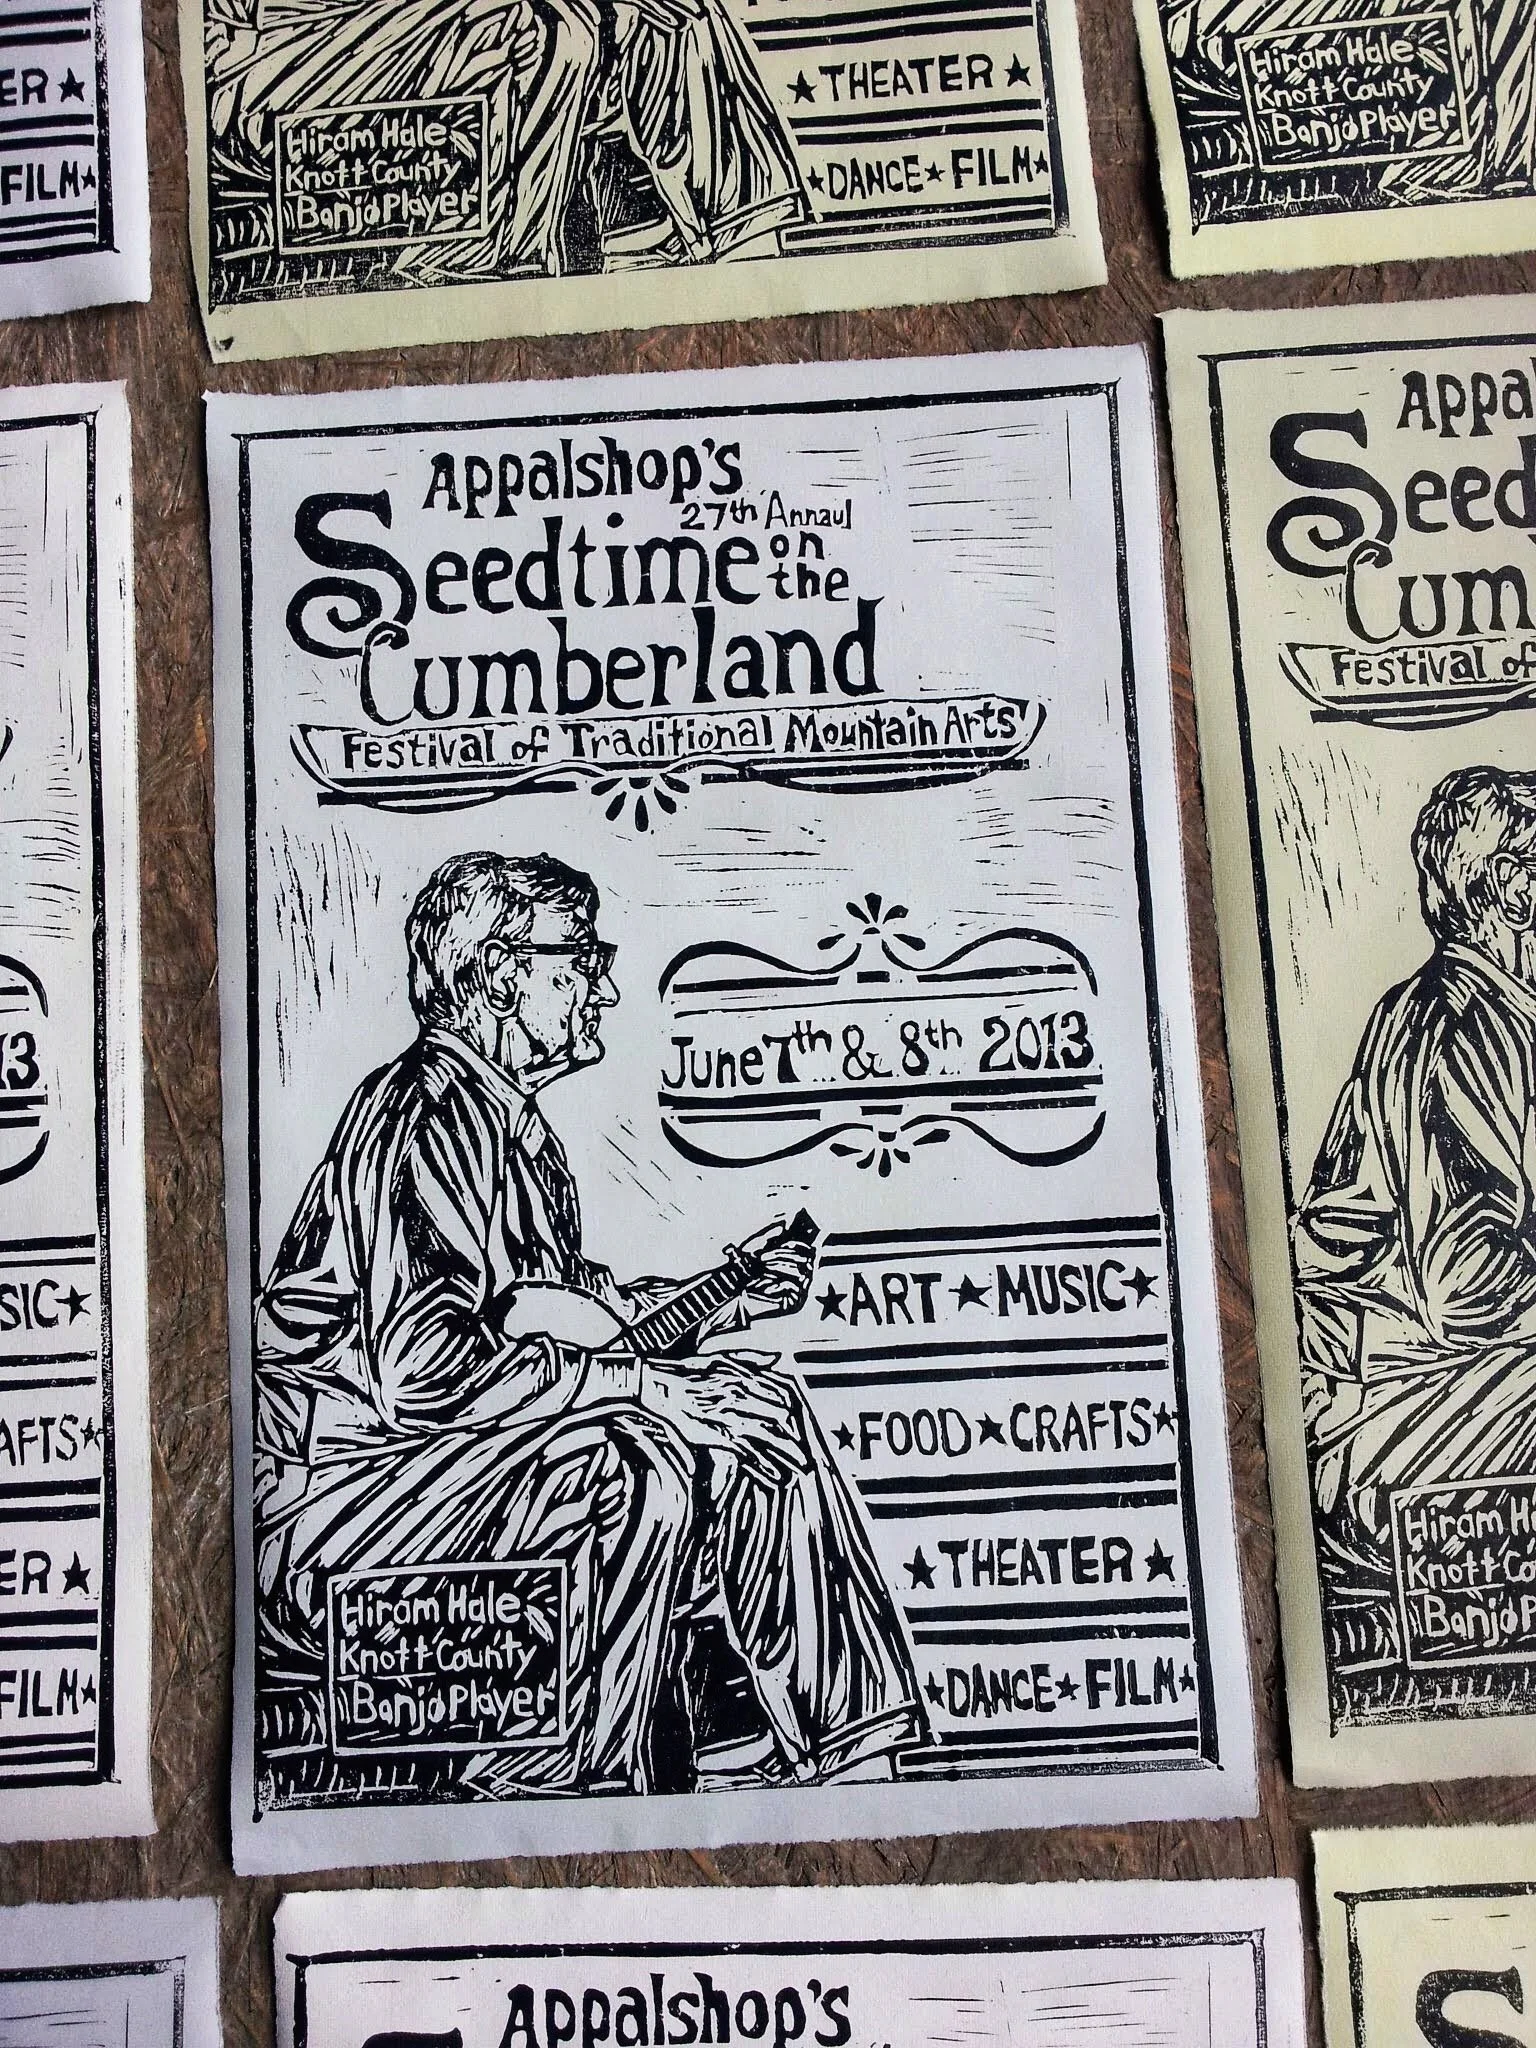 ER ★
FILM★
Hiram Hale
Knott County
Banjo Player
★ THEATER ★
★DANCE★FILM★
Hiram Hale
Knott County
Banjo Player
Appalshop's
27th Annaul
Seedtime on the
Cumberland
Festival of Traditional Mountain Arts
June 7th & 8th 2013
★ART★MUSIC★
★FOOD★CRAFTS★
★THEATER★
★DANCE★FILM★
Hiram Hale
Knott County
Banjo Player
13
SIC★
AFTS★
ER ★
FILM★
Appa
Seed
Cum
Festival of
Hiram H
Knott Co
Banjo P
Appalshop's
S